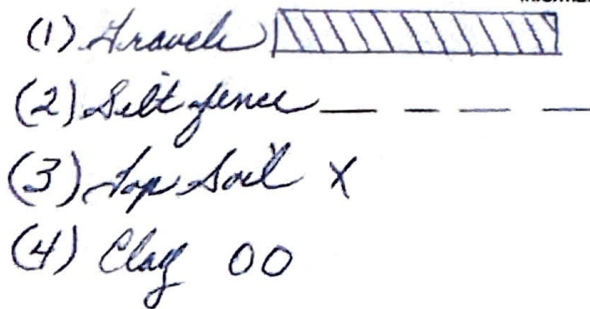 (1) Gravel
(2) Silt fence _ _ _ _
(3) Top Soil X
(4) Clay OO